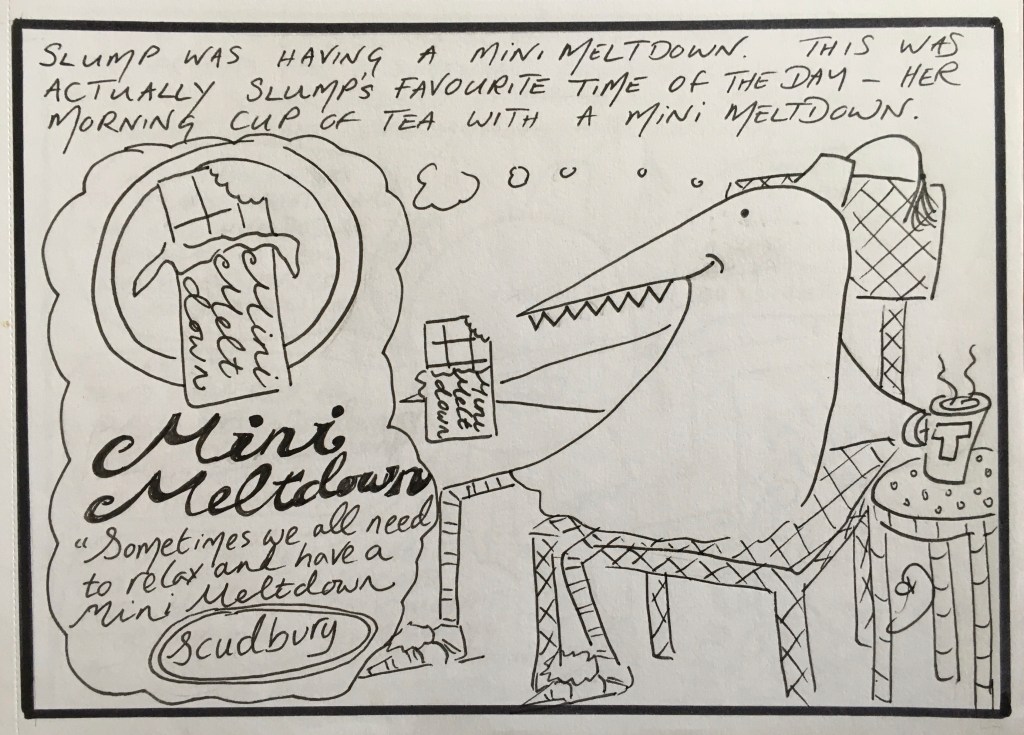 SLUMP WAS HAVING A MINI MELTDOWN. THIS WAS
ACTUALLY SLUMP'S FAVOURITE TIME OF THE DAY – HER
MORNING CUP OF TEA WITH A MINI MELTDOWN.
Mini
Melt
down
Mini
Meltdown
"Sometimes we all need
to relax and have a
Mini Meltdown
Scudbury
Mini
Melt
down
T